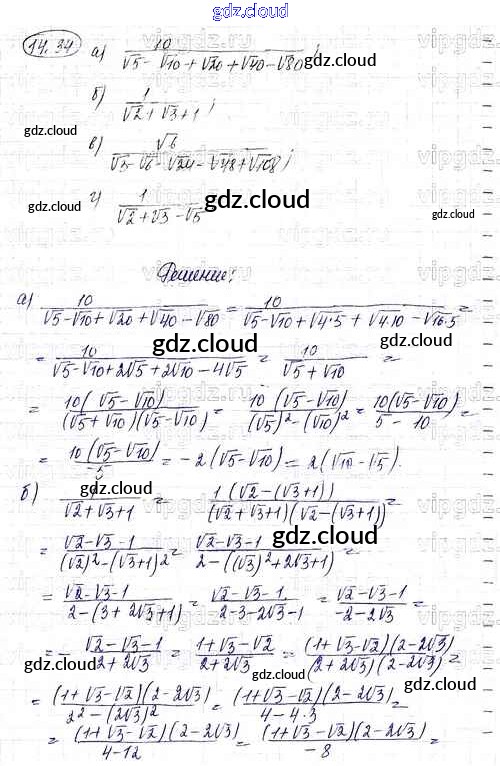 gdz.cloud
14.34 а) 10/(√5-√10+√20+√40-√80);
gdz.cloud
б) 1/(√2+√3+1);
gdz.cloud
в) √6/(√3-√6-√24-√48+√108);
г) 1/(√2+√3-√5)
gdz.cloud
Решение:
а) 10/(√5-√10+√20+√40-√80) = 10/(√5-√10+√4·5+√4·10-√16·5) =
gdz.cloud
= 10/(√5-√10+2√5+2√10-4√5) = 10/(√5+√10) =
= 10(√5-√10)/((√5+√10)(√5-√10)) = 10(√5-√10)/((√5)²-(√10)²) = 10(√5-√10)/(5-10) =
= 10(√5-√10)/-5 = -2(√5-√10) = 2(√10-√5).
gdz.cloud
б) 1/(√2+√3+1) = 1(√2-(√3+1))/((√2+√3+1)(√2-(√3+1))) =
= (√2-√3-1)/((√2)²-(√3+1)²) = (√2-√3-1)/(2-((√3)²+2√3+1)) =
= (√2-√3-1)/(2-(3+2√3+1)) = (√2-√3-1)/(2-3-2√3-1) = (√2-√3-1)/(-2-2√3) =
= -(√2-√3-1)/(2+2√3) = (1+√3-√2)/(2+2√3) = (1+√3-√2)(2-2√3)/((2+2√3)(2-2√3)) =
= (1+√3-√2)(2-2√3)/(2²-(2√3)²) = (1+√3-√2)(2-2√3)/(4-4·3) =
= (1+√3-√2)(2-2√3)/(4-12) = (1+√3-√2)(2-2√3)/-8 =
gdz.cloud